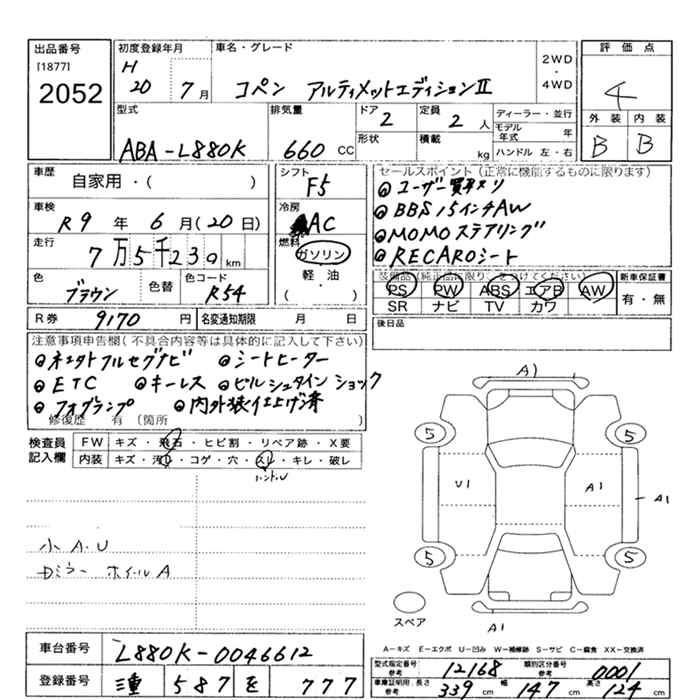 出品番号
[1877]
2052
初度登録年月
H 20 7月
車名・グレード
コペン アルティメットエディションⅡ
2WD・4WD
評価点
4
外装 内装
B B
型式
ABA-L880K
排気量
660 CC
ドア
2
形状
定員
2人
積載
kg
ディーラー・並行
モデル年式 年
ハンドル 左・右
車歴
自家用・( )
車検
R9年6月(20日)
走行
7万5千239km
色
ブラウン
色替
色コード
R54
R券 9170円
名変通知期限 月 日
シフト
F5
冷房
AC
燃料
ガソリン
軽・油
( )
セールスポイント(正常に機能するものに限ります)
◎ユーザー買取り
◎BBS15インチAW
◎MOMOステアリング
◎RECAROシート
装備品(純正品に限り、○をつけてください)
PS PW ABS エアB AW
SR ナビ TV カワ
新車保証書
有・無
後日品
注意事項申告欄(不具合内容等は具体的に記入して下さい)
◎ネエタトフルセグナビ ◎シートヒーター
◎ETC ◎キーレス ◎ビルシュタインショック
◎フォグランプ ◎内外装仕上げ済
修復歴 有(箇所 )
検査員記入欄
FW キズ・飛石・ヒビ割・リペア跡・X要
内装 キズ・汚れ・コゲ・穴・スレ・キレ・破レ
ハンドル
小A.U
ホイールA
A1
5 5
U1 A1 A1
5 5
スペア
A1
A-キズ E-エクボ U-凹み W-補修跡 S-サビ C-腐食 XX-交換済
車台番号
L880K-0046612
登録番号
三重 587 を 777
型式指定番号 参考
12168
類別区分番号 参考
0001
車庫証明用 参考
長さ 339cm 幅 147cm 高さ 124cm